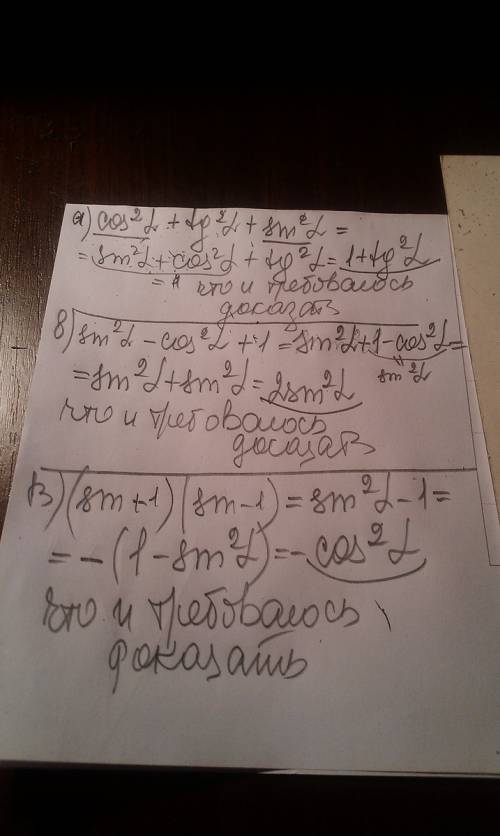 а) cos²α + tg²α + sin²α =
= sin²α + cos²α + tg²α = 1 + tg²α
= 1 что и требовалось
доказать
б) sin²α - cos²α + 1 = sin²α + 1 - cos²α =
= sin²α + sin²α = 2sin²α
sin²α
что и требовалось
доказать
в) (sin+1)(sin-1) = sin²α - 1 =
= -(1 - sin²α) = -cos²α
что и требовалось
доказать